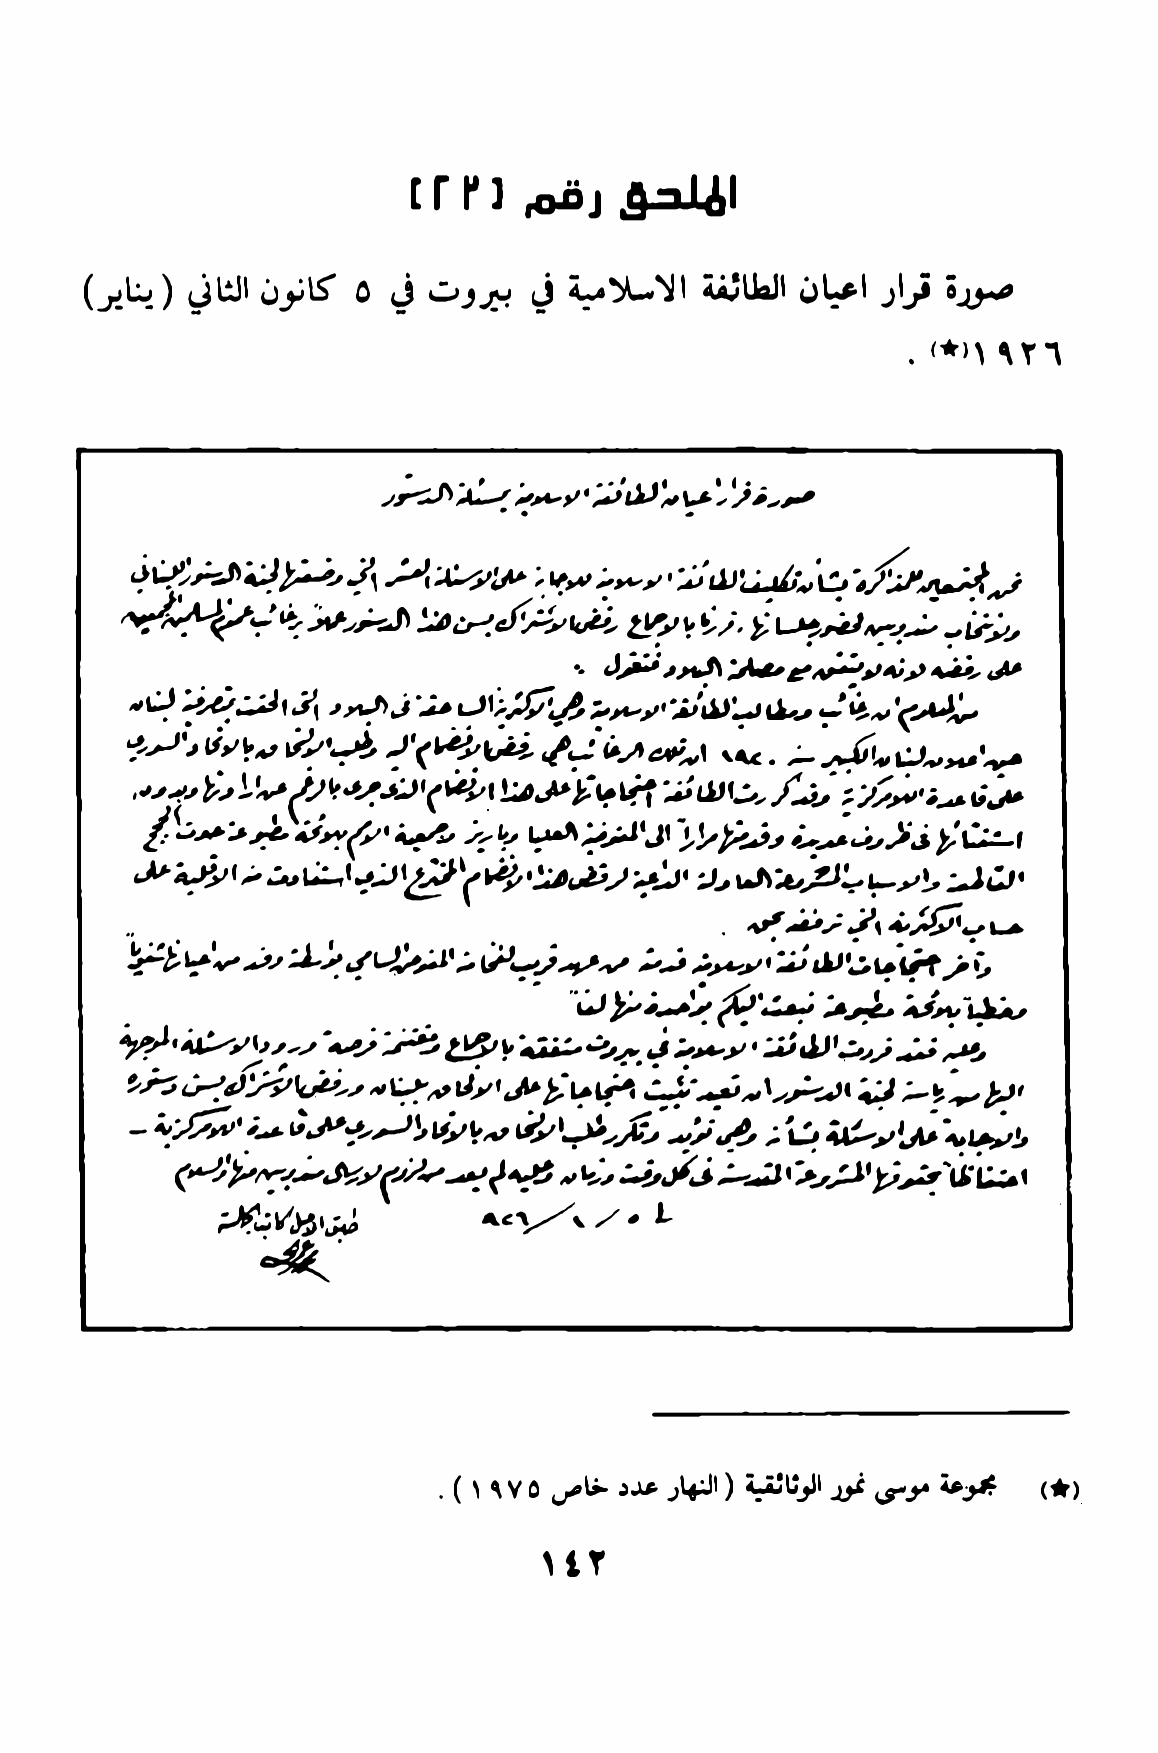 الملحق رقم [٢٣]
صورة قرار اعيان الطائفة الاسلامية في بيروت في ٥ كانون الثاني (يناير)
١٩٢٦(★) .
صورة قرار اعيان الطائفة الاسلامية بمسئلة الدستور
نحن المجتمعين للمذاكرة بشأن تكليف الطائفة الاسلامية للاجابة على الاسئلة العشر التي وضعتها لجنة الدستور اللبناني
ولانتخاب مندوبين لحضور جلساتها ، قررنا بالاجماع رفض الاشتراك بسن هذا الدستور عملاً برغائب عموم المسلمين المجمعين
على رفضه لانه لا يتفق مع مصلحة البلاد فنقول :
من المعلوم ان رغائب ومطاليب الطائفة الاسلامية وهي الاكثرية الساحقة في البلاد التي الحقت بمتصرفية لبنان
حين اعلان لبنان الكبير سنة ١٩٢٠ ان تلك الرغائب هي رفض الانضمام اليه وطلب الالتحاق بالاتحاد السوري
على قاعدة اللامركزية وقد كررت الطائفة احتجاجاتها على هذا الانضمام الذي جرى بالرغم عن ارادتها وبدون
استفتائها في ظروف عديدة وقدمتها مراراً الى المفوضية العليا وباريز وجمعية الامم بلائحة مطبوعة حوت الحجج
القاطعة والاسباب المشروعة العادلة الداعية لرفض هذا الانضمام الذي استفادت منه الاقلية على
حساب الاكثرية التي ترفضه بحق .
وآخر احتجاجات الطائفة الاسلامية قدمته من عهد قريب لفخامة المفوض السامي بواسطة وفد من اعيانها شفوياً
وخطياً بلائحة مطبوعة نبعث اليكم بواحدة منها لفاً
وعليه فقد قررت الطائفة الاسلامية في بيروت متفقة بالاجماع ومغتنمة فرصة ورود الاسئلة الموجهة
اليها من رياسة لجنة الدستور ان تعيد تثبيت احتجاجاتها على الالحاق بلبنان ورفض الاشتراك بسن دستوره
والاجابة على الاسئلة بشأنه وهي تؤيد وتكرر طلب الالتحاق بالاتحاد السوري على قاعدة اللامركزية –
احتفاظاً بحقوقها المشروعة المقدسة في كل وقت وزمان وعليه لم يعد من لزوم لارسال مندوبين منها والسلام
٥ / ١ / ٩٢٦
طبق الاصل كاتب الجلسة
(★) مجموعة موسى نمور الوثائقية (النهار عدد خاص ١٩٧٥) .
١٤٢